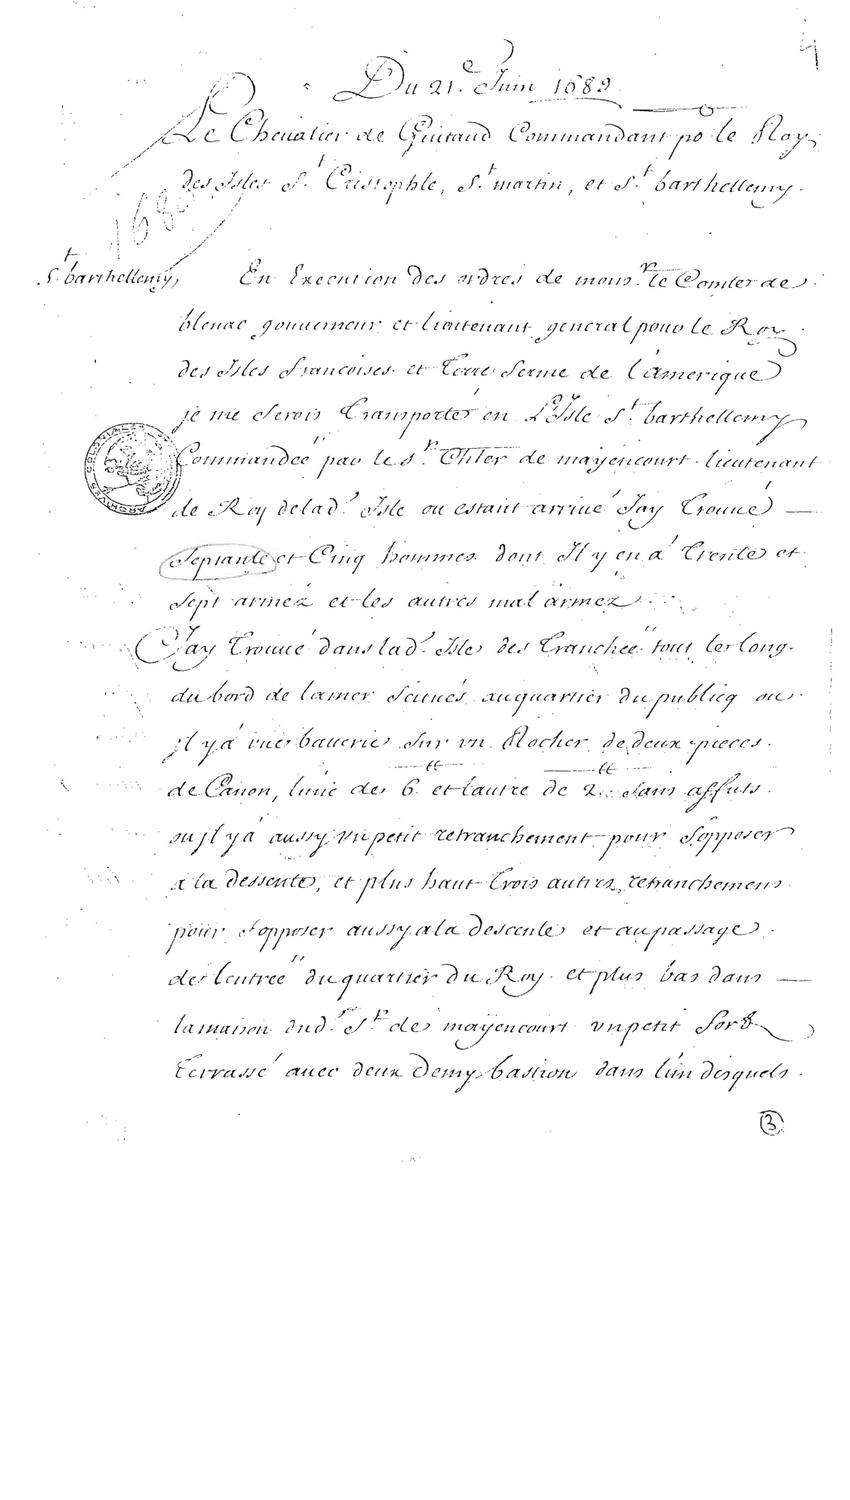 4
Du 21.e Juin 1689
Le Chevalier de Guitaud Commandant po le Roy
des Isles St Cristophle, St martin, et St barthellemy.
1689
St barthellemy,
En Execution des ordres de monsr le Comte de
blenac gouverneur et lieutenant general pour le Roy
des Isles francoises et Terre ferme de l'amerique
je me serois Transporté en L'Isle St barthellemy
Commandée par le sr Chler de mayencourt lieutenant
de Roy de lad.e Isle ou estant arrivé Jay Trouvé
Septante et Cinq hommes dont Il y en a Trente et
sept armez et les autres mal armez.
Jay Trouvé dans lad.e Isle des Tranchée tout le long
du bord de la mer scitués au quartier du publicq ou
il y a une batterie sur un Rocher de deux pieces
de Canon, l'une de 6 tt et lautre de 2 tt sans affuts
ou il y a aussy un petit retranchement pour s'opposer
a la dessente, et plus haut Trois autres retranchemens
pour s'opposer aussy a la descente et au passage
de lentrée du quartier du Roy et plus bas dans
la maison dud.t Sr de mayencourt un petit fort
Terrassé avec deux Demy bastion dans l'un desquels
ARCHIVES COLONIALES
3